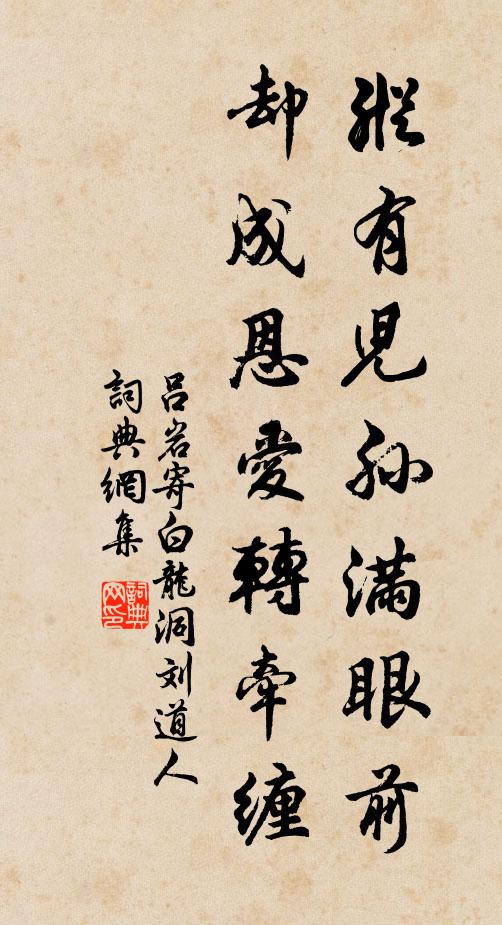 縱有児孫滿眼前
却成恩愛轉牽纏
吕岩寄白龍洞刘道人
詞典網集
詞典网印